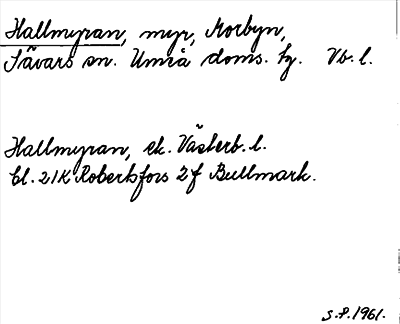 Hallmyran, myr, Norbyn,
Sävars sn. Umeå doms. hg. Vb. l.
Hallmyran, ek. Västerb. l.
bl. 21K Robertsfors 2f Bullmark.
S.P. 1961.